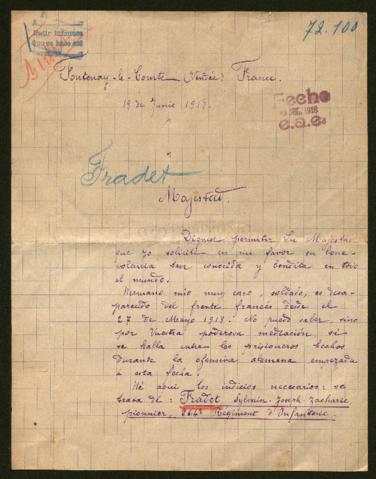 72.100
Fontenay-le-Comte (Vendée) France.
19 de Junio 1918.
Fecho
1918
e.a.e.
Fradet
Majestad.
Dignese permitir Su Majestad
que yo solicite en mi favor su bene-
volencia tan conocida y bendita en todo
el mundo.
Hermano mio muy caro, soldado, es desa-
parecido del frente francés desde el
27 de Mayo 1918. No puedo saber sino
por Vuestra poderosa mediación si
se halla entre los prisioneros hechos
durante la ofensiva alemana empezada
a esta fecha.
Hé aqui los indicios necesarios: se
trata de: Fradet Sylvain-Joseph-Zacharie,
pionnier, Régiment d'Infanterie.